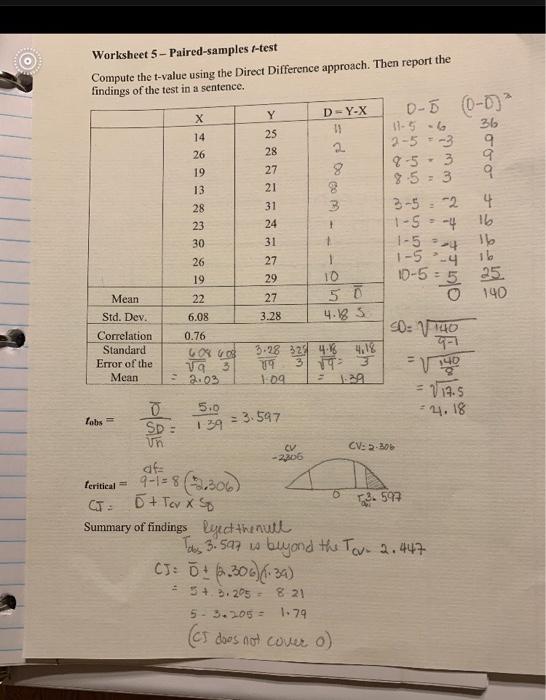 Worksheet 5 – Paired-samples t-test
Compute the t-value using the Direct Difference approach. Then report the
findings of the test in a sentence.
X Y D = Y-X D-D̄ (D-D̄)²
14 25 11 11-5 = 6 36
26 28 2 2-5 = -3 9
19 27 8 8-5 = 3 9
13 21 8 8-5 = 3 9
28 31 3 3-5 = -2 4
23 24 1 1-5 = -4 16
30 31 1 1-5 = -4 16
26 27 1 1-5 = -4 16
19 29 10 10-5 = 5 25
Mean 22 27 5 D̄ 0 140
Std. Dev. 6.08 3.28 4.18 S
Correlation 0.76
Standard
Error of the
Mean
6.08 6.08 3.28 3.28 4.18 4.18
√9 3 √9 3 √9 = 3
= 2.03 1.09 = 1.39
SD = √140
9-1
= √140
8
= √17.5
= 4.18
tobs = D̄ 5.0
SD = 1.39 = 3.597
√n
CV CV = 2.306
-2.306
0 Tobs 3.597
df =
tcritical = 9-1 = 8 (±2.306)
CI = D̄ ± Tcv x SD̄
Summary of findings Reject the null
Tobs 3.597 is beyond the Tcv = 2.447
CI: D̄ ± (2.306)(1.39)
= 5 + 3.205 = 8.21
5 - 3.205 = 1.79
(CI does not cover 0)